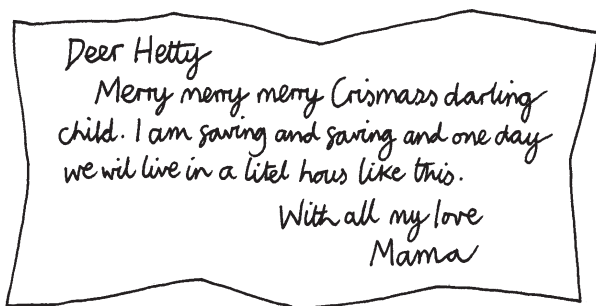 Deer Hetty
Merry merry merry Crismass darling
child. I am saving and saving and one day
we wil live in a litel hous like this.
With all my love
Mama